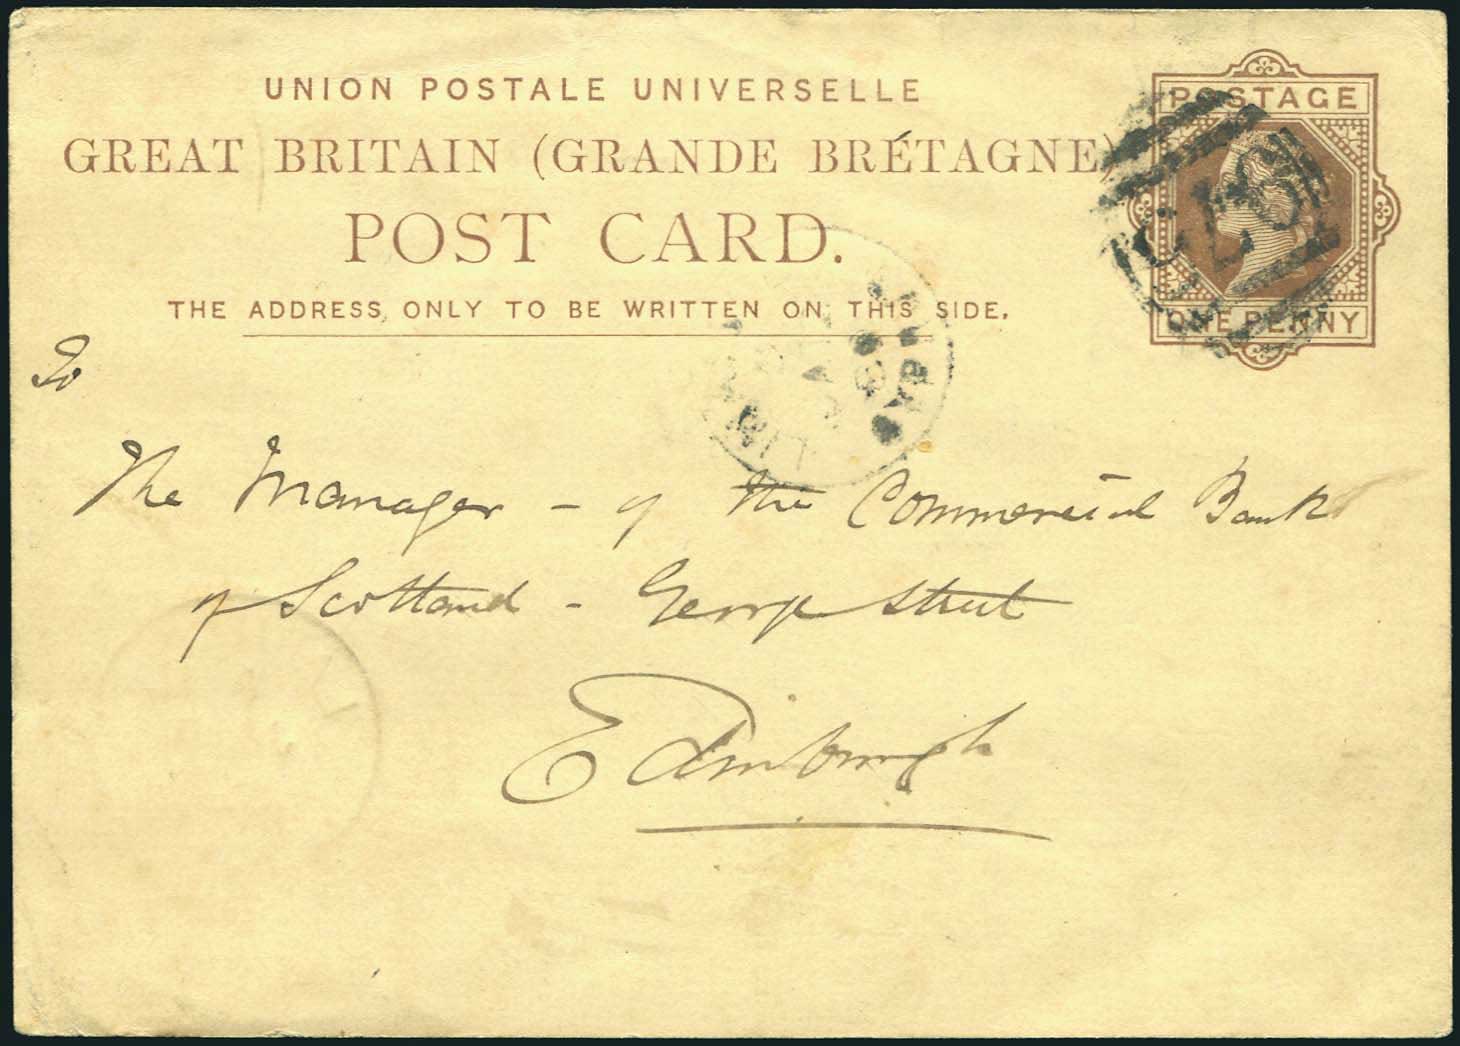 UNION POSTALE UNIVERSELLE
GREAT BRITAIN (GRANDE BRÉTAGNE)
POST CARD.
THE ADDRESS ONLY TO BE WRITTEN ON THIS SIDE.
POSTAGE
ONE PENNY
To
The Manager - of the Commercial Bank
of Scotland - George Street
Edinburgh